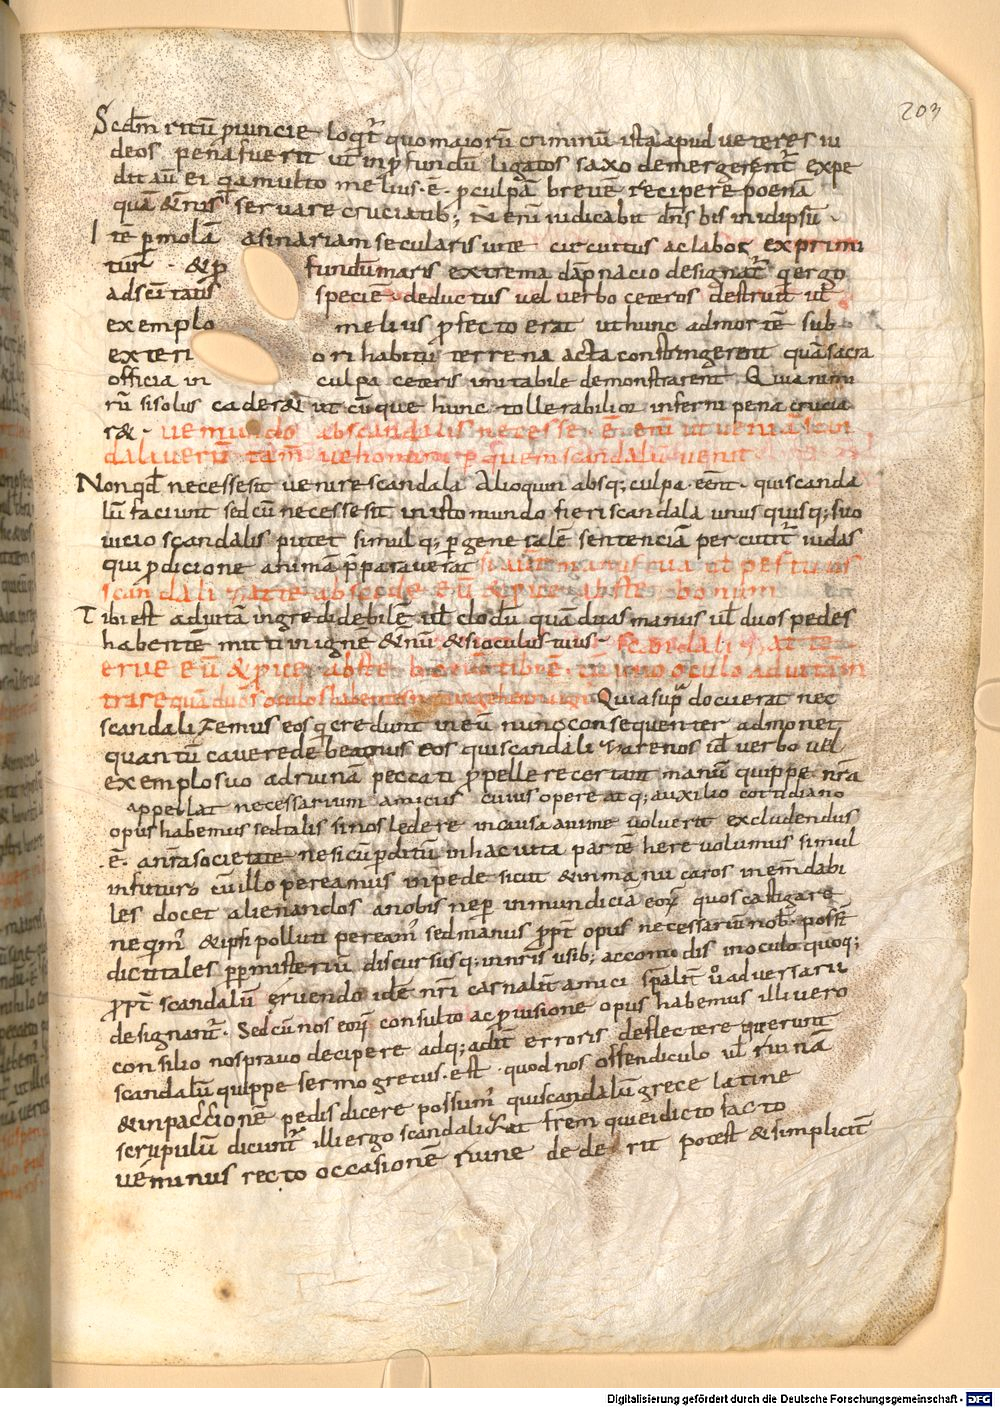 203
Scdm ritū ꝓuincie loq̄t quo maiorū criminū ista apud ueteres iu
deos pena fuerit ut in ꝓfundū ligatos saxo demergerent expe
dit aū ei q̄a multo melius ē ꝓ culpa breuē recipere poena
quā & ̄nis seruare cruciatib; N̄ enī iudicabit dn̄s bis in idipsū
Itē ꝑ molā asinariam secularis uite circuitus ac labor exprimi
tur & ꝓ fundū maris extrema dāpnacio designat̄ q̄ ergo
ad scī tatis speciē deductus uel verbo ceteros destruit ut
exemplo melius ꝓfecto erat ut hunc ad mortē sub
exteri ori habitū terrena acta constringerent quā sacra
officia in culpa ceteris imitabile demonstrarent Quia nimi
rū si solus cader& utcūque hunc tollerabilior inferni pena crucia
r& ue mundo ab scandalis necesse ē enī ut ueniā scan
dali uerū tam̄ ue homini ꝑ quem scandalū uenit
Non qd̄ necesse sit uenire scandala Alioquin absq; culpa eēnt qui scanda
lū faciunt sed cū necesse sit in isto mundo fieri scandala unus quisq; suo
uicio scandalis patet simul q; ꝑ generalē sentenciā percutit̄ iudas
qui ꝓdicione animā p̄parauerat si aūt manus tua ul̄ pes tuus
scandalizat te abscede eū & ꝓice abs te bonum
Tibi est ad uitā ingredi debilē ul̄ clodū quā duas manus ul̄ duos pedes
habentē mitti in ignē &nū & si oculus tuus scandalizat te
erue eū & ꝓice abs te bonū tibi ē cū uno oculo ad uitā in
trare quā duos oculos habentē mitti in gehennā ignis Quia supͣ docuerat nec
scandalizemus eos q̄ credunt in eū nunc consequenter admonet
quantū cauere debeamus eos qui scandalizare nos ul̄ verbo vel
exemplo suo ad ruinā peccati ꝓpellere certant manū quippe nr̄a
appellat necessarium amicus cuius opere atq; auxilio cottidiano
opus habemus sed talis si nos ledere in causa anime uoluerit excludendus
ē a nr̄a societate ne si cū ꝑditū in hac uita partē here uolumus simul
in futuro cū illo pereamus in pede sicut & in manu caros in em̄dabi
les docet alienandos a nobis ne ꝑ inmundicia eoꝝ quos castigare
neqm̄ & ipsi polluti pereamꝰ sed manus ꝓpt opus necessariū nob̄ possīt
dici tales ꝑ misteriū discursusq; in nr̄is usib; accomodis in oculo quoq;
ꝓpt̄ scandalū eruendo idē nr̄i carnalit̄ amici sp̄alit̄ uͦ aduersarii
designant̄ Sed cū nos eoꝝ consulto ac ꝓuisione opus habemus illi vero
consilio nos prauo decipere adq; adīt erroris deflectere querunt
scandalū quippe sermo grecus est quod nos offendiculo ul̄ ruinā
& inpaccionē pedis dicere possumꝰ qui scandalū grece latine
scrupulū dicunt̄ ille ergo scandalizat frēm qui ei dicto facto
ué minus recto occasionē ruine dederit Potest & simpliciū
Digitalisierung gefördert durch die Deutsche Forschungsgemeinschaft - DFG